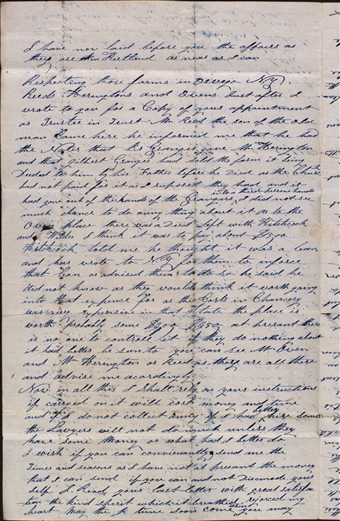 I have now laid before you the affairs as
they are in Kirtland as near as I can
Respecting those farms in Orrego NY
Reeds Herringtons and Owens Just after I
wrote to you for a Copy of your appointment
as Trustee in Trust Mr Reed the son of the old
man Came here he informed me that he had
the Notes that Mr Granger gave Mr Herington
and that Gilbert Granger had told the farm it being
Deeded to him by his Father before he died as the Church
had not paid for it as I supposed they had and it
had gone out of the hands of the Grangers, I did not see
much chance to do anny thing about it as to the
Owen place there was a Deed left with Hitchcock
and I think it was to pay about
Hitchcock told me he thought it was a lean
and has wrote to N.Y. for them to inforce
that Lean or advised them to do so he said he
did not know as they would think it worth going
into that expence for as the Costs in Chancery
was very expensive in that State the place is
worth probably some at present there
is no one to controll it if they do nothing about
it had better be sure to you can see Mr Owen
and Mr Herrington or Reed as they are all there
and advise accordingly
Now in all this I shall rely on your instructions
if carried on it will cost money and time
and if I do not collect any if I had here some
the Lawyers will not do much unless they
have some Money or what had I better do
I wish if you can conveniently send me the
Times and seasons as I have not at present the money
that I can send if you can and not Discomode your
self I Read your last letter with great satisfaction
the kind spirit which it breathed rejoiced my
heart May the time soon come you may